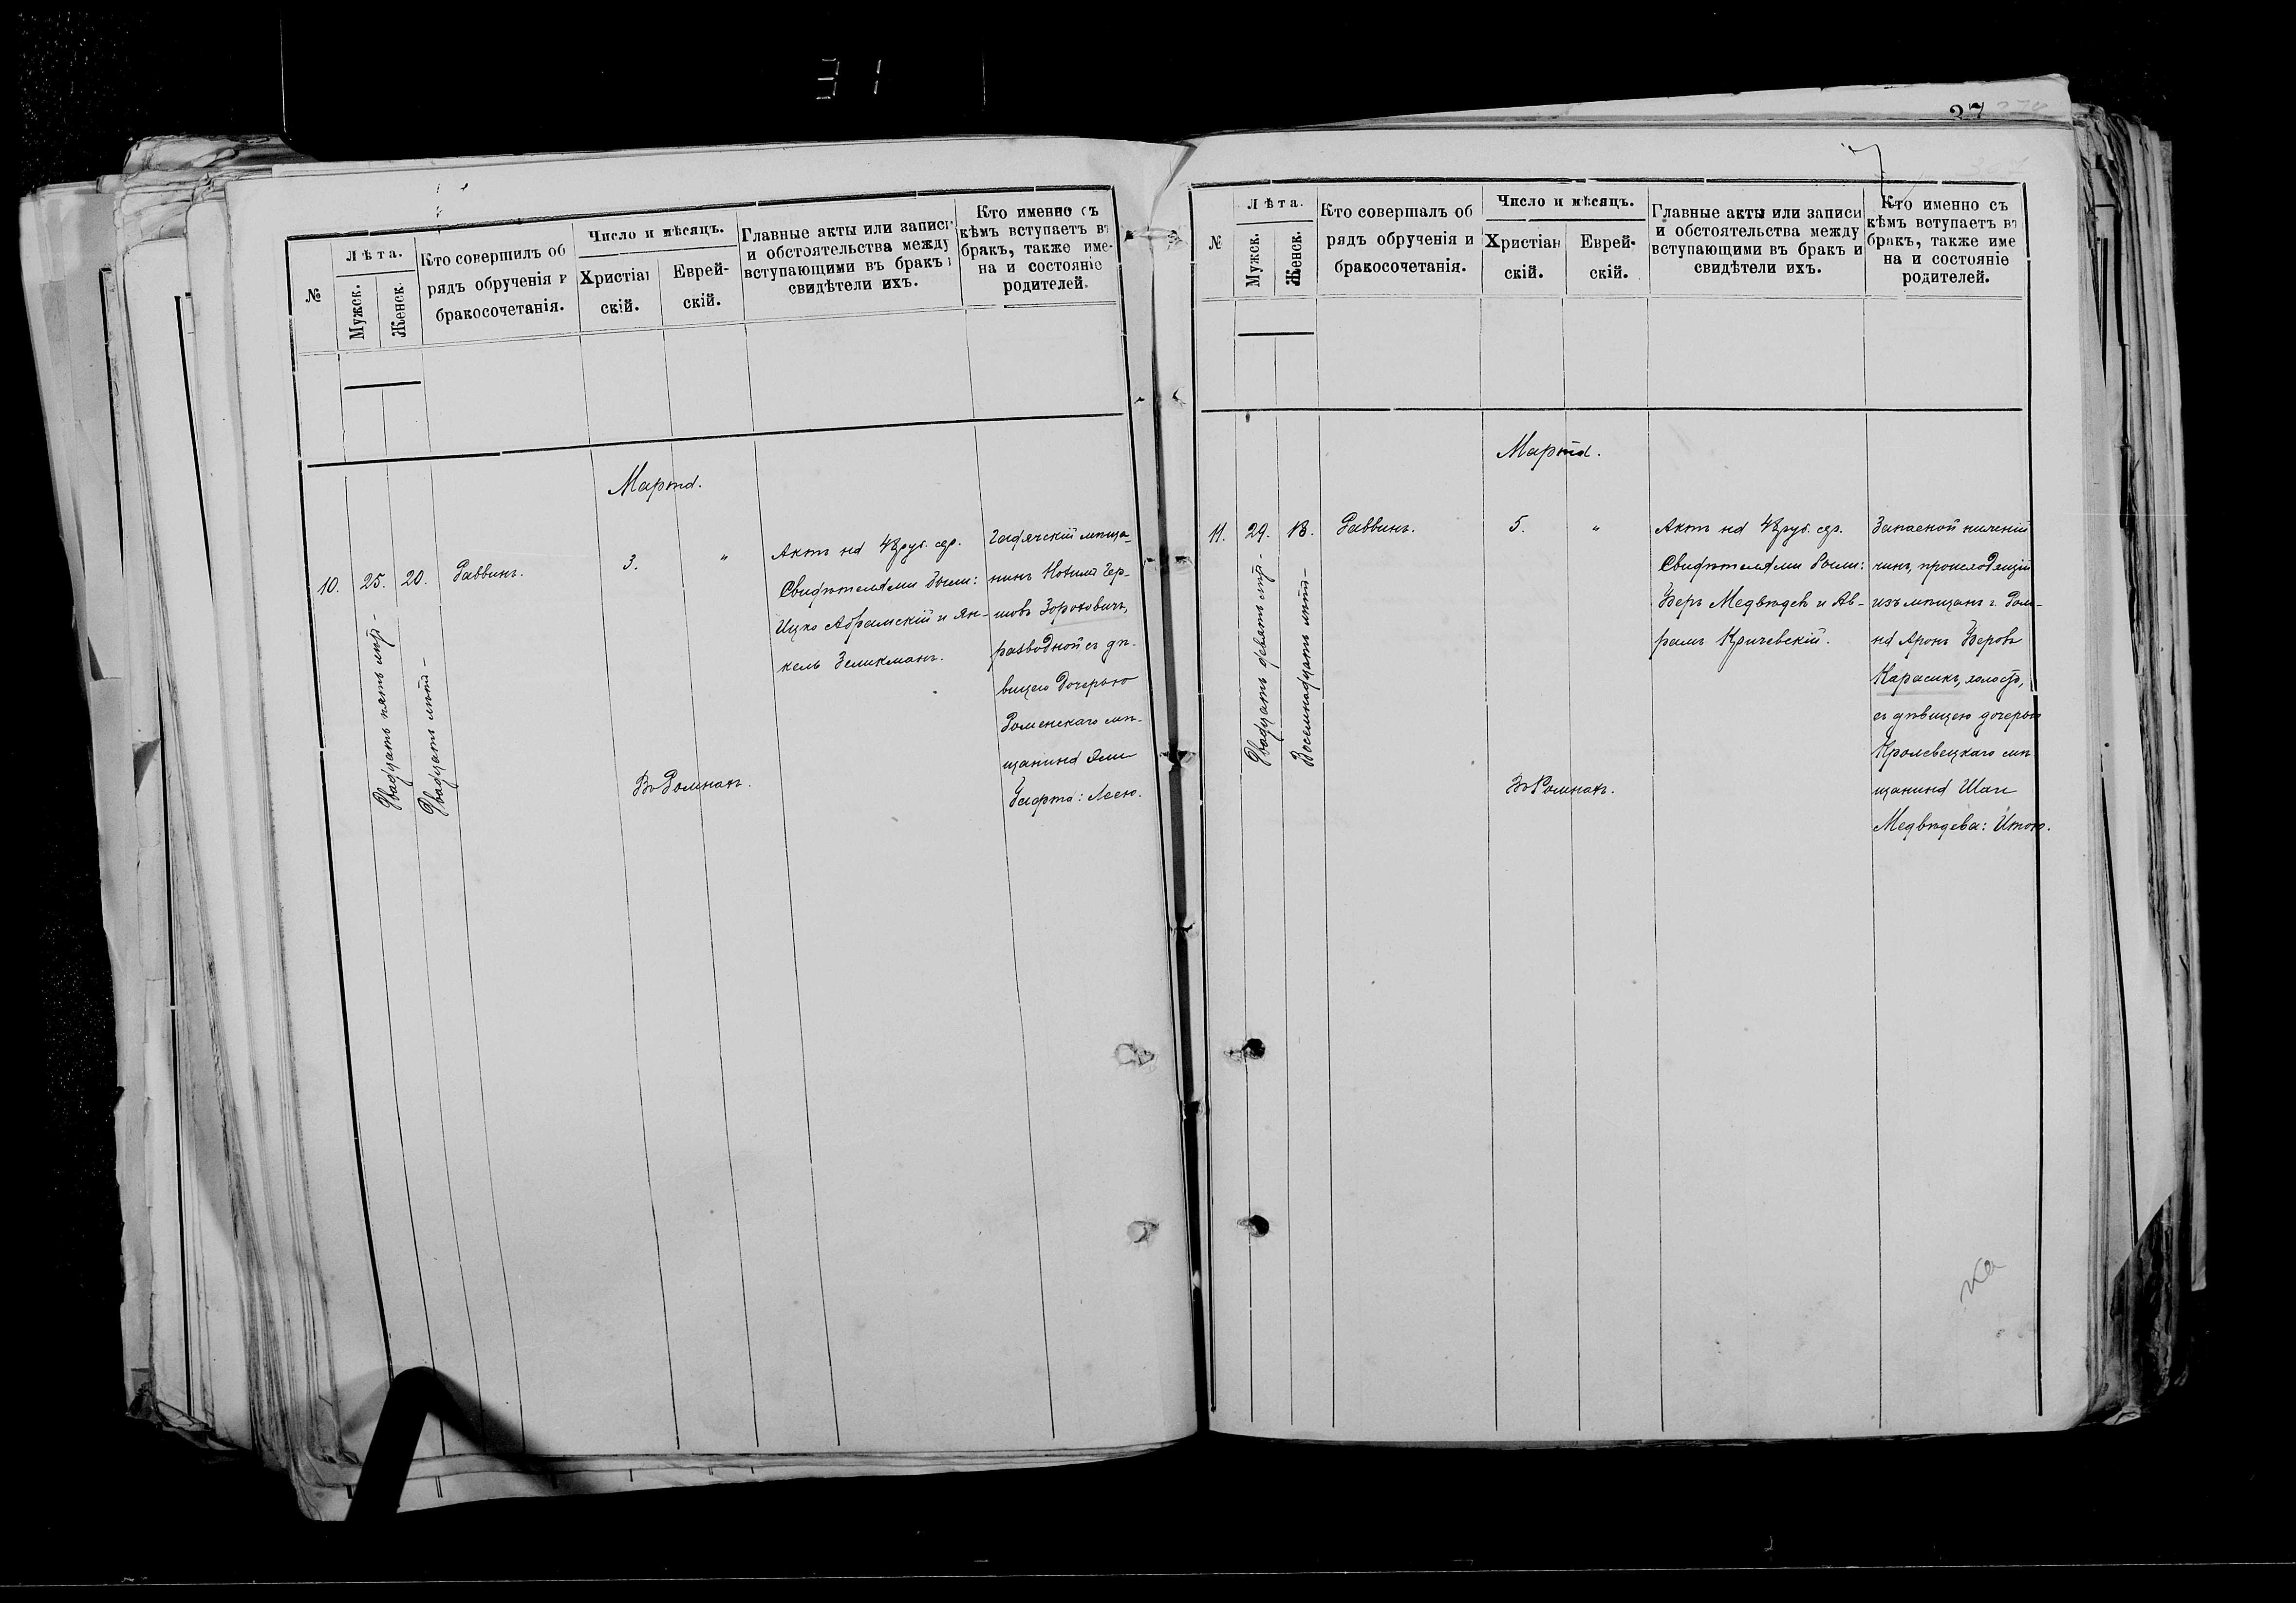 37
№
Лѣта.
Мужск.
Женск.
Кто совершилъ об
рядъ обрученія и
бракосочетанія.
Число и мѣсяцъ.
Христіан
скій.
Еврей-
скій.
Главные акты или записи
и обстоятельства между
вступающими въ бракъ и
свидѣтели ихъ.
Кто именно съ
кѣмъ вступаетъ въ
бракъ, также име-
на и состояніе
родителей.
Марта.
10.
25.
Двадцать пять лѣтъ -
20.
Двадцать лѣтъ -
Раввинъ.
3.
"
Въ Ромнахъ.
Актъ на 48 руб. сер.
Свидѣтелями были:
Ицко Абрамскій и Ян-
кель Зеликманъ.
Гадячскій мѣща-
нинъ Нохимъ Гер-
шовъ Зороховичъ,
разводной съ дѣ-
вицею дочерью
Роменскаго мѣ-
щанина Эли
Лосею.
№
Лѣта.
Мужск.
Женск.
Кто совершалъ об
рядъ обрученія и
бракосочетанія.
Число и мѣсяцъ.
Христіан
скій.
Еврей-
скій.
Главные акты или записи
и обстоятельства между
вступающими въ бракъ и
свидѣтели ихъ.
Кто именно съ
кѣмъ вступаетъ въ
бракъ, также име
на и состояніе
родителей.
Марта.
11.
29.
Двадцать девять лѣтъ -
18.
Восемнадцать лѣтъ -
Раввинъ.
5.
"
Въ Ромнахъ.
Актъ на 48 руб. сер.
Свидѣтелями были:
Беръ Медвѣдевъ и Ав-
рамъ Кричевскій.
Запасной нижній
чинъ, происходящій
изъ мѣщанъ г. Ром-
на Аронъ Беровъ
Карасикъ, холостъ,
съ дѣвицею дочерью
Кролевецкаго мѣ
щанина Шаи
Медвѣдева: Итою.